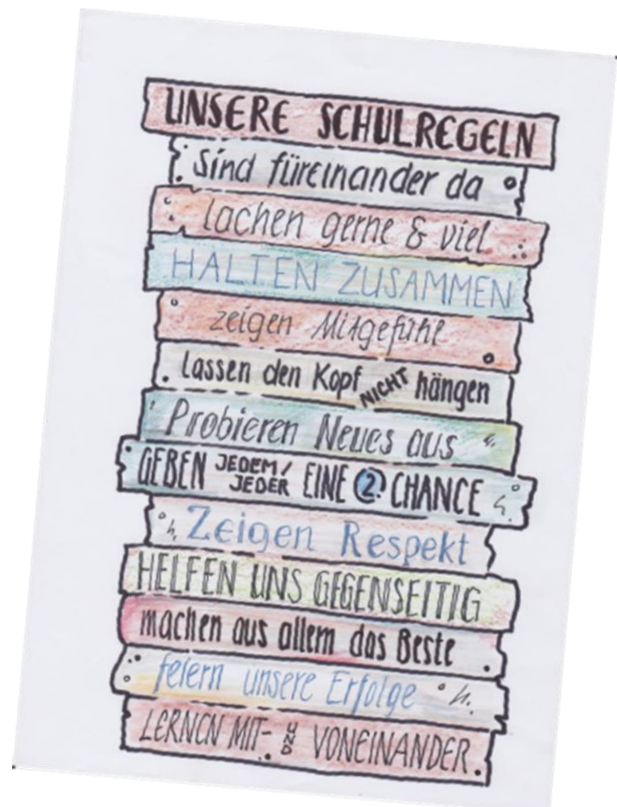 UNSERE SCHULREGELN
Sind füreinander da
lachen gerne & viel
HALTEN ZUSAMMEN
zeigen Mitgefühl
Lassen den Kopf NICHT hängen
Probieren Neues aus
GEBEN JEDEM/JEDER EINE 2. CHANCE
Zeigen Respekt
HELFEN UNS GEGENSEITIG
machen aus allem das Beste
feiern unsere Erfolge
LERNEN MIT- UND VONEINANDER